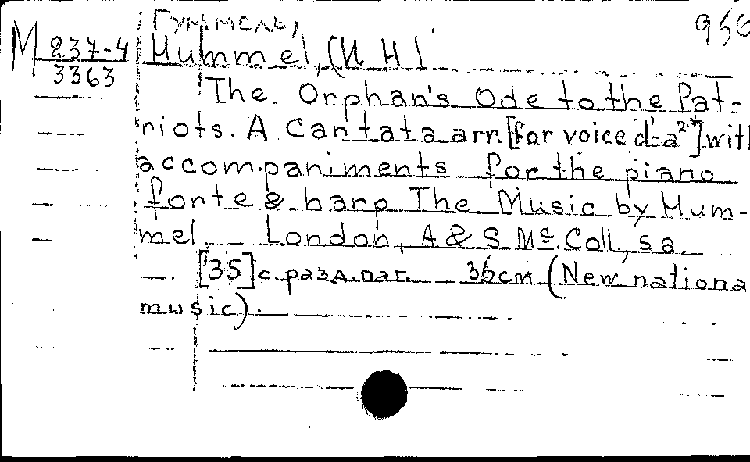 (Гуммель) 950
М 237-4 Hummel, (И. Н.)
3363
The Orphan's Ode to the Pat-
riots. A Cantata arr. [for voice d:-a²] with
accompaniments for the piano
forte & harp The Music by Hum-
mel. London, A & S Mc Coll, s.a.
— [35] с. разд. паг. 36см (New nationa
music).